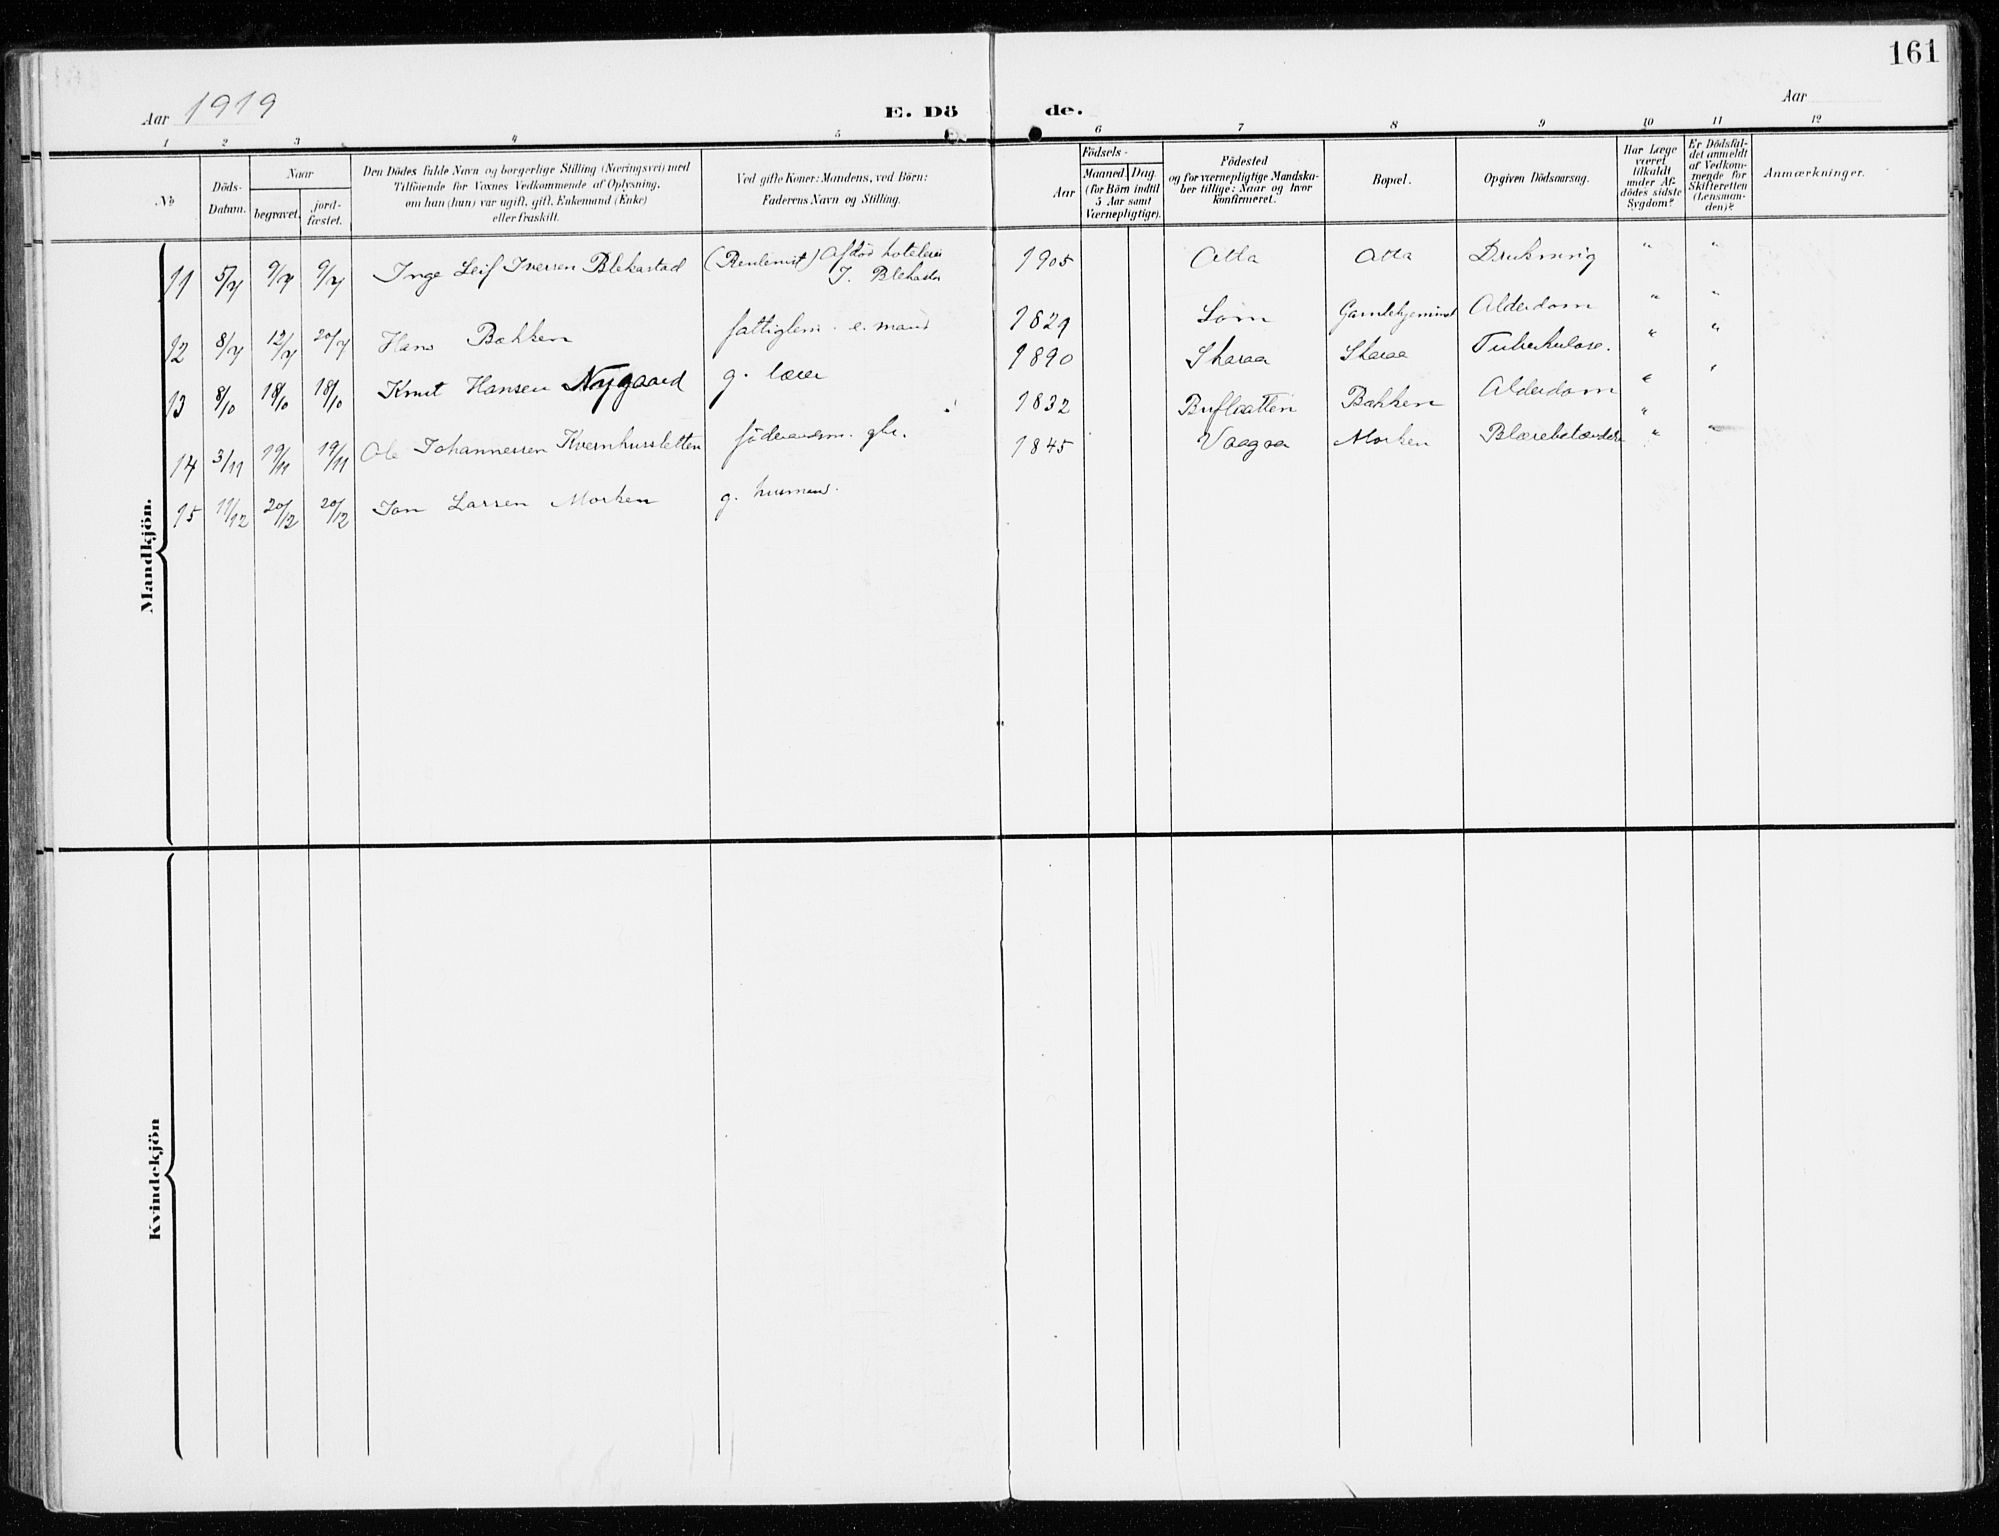 161
Aar 1919
E. Dö de.
Aar
1 2 3 4 5 6 7 8 9 10 11 12
No
Döds-Datum.
Naar
begravet.
jord-fæstet.
Den Dödes fulde Navn og borgerlige Stilling (Næringsvei) med
Tilföiende for Voxnes Vedkommende af Oplysning,
om han (hun) var ugift, gift, Enkemand (Enke)
eller fraskilt.
Ved gifte Koner: Mandens, ved Börn:
Faderens Navn og Stilling.
Födsels-
Aar
Maaned
Dag
(for Börn indtil
5 Aar samt
Værnepligtige).
Födested
og for værnepligtige Mandska-
ber tillige: Naar og hvor
konfirmeret.
Bopæl.
Opgiven Dödsaarsag.
Har Læge
været
tilkaldt
under Af-
dödes sidste
Sygdom?
Er Dödsfal-
det anmeldt
af Vedkom-
mende for
Skifteretten
(Lensman-
den)?
Anmærkninger.
Mandkjön.
11 5/7 9/7 9/7 Inge Leif Iversen Blekastad J. 1905 Otta Otta Drukning " "
12 8/7 12/7 20/7 Hans Bakken fattiglem e. mand 1829 Lom Gamlehjemmet Alderdom " "
13 8/10 18/10 18/10 Knut Hansen Nygaard g. lærer 1890 Skaraa Skaraa Tuberkulose. " "
14 3/11 19/11 19/11 Ole Johannessen Kvernhussletten föderaadsm. gbr. 1832 Bufloatten Bakken Alderdom " "
15 11/12 20/12 20/12 Jon Larsen Morken g. husmand. 1845 Vaagaa Morken " "
Kvindekjön